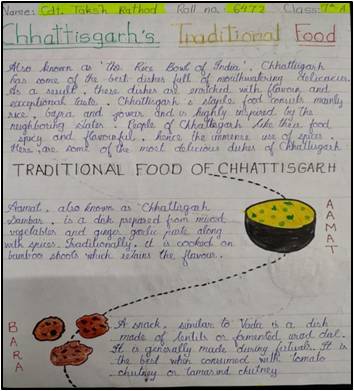 Name: Cdt. Taksh Rathod Roll no. 6472 Class: 7th A
Chhattisgarh's Traditional Food
Also known as 'the Rice Bowl of India', Chhattisgarh
has some of the best dishes full of mouthwatering delicacies.
As a result, these dishes are enriched with flavour and
exceptional taste. Chhattisgarh's staple food consists mainly
rice, bajra and jowar and is highly inspired by the
neighboring states. People of Chhattisgarh like their food
spicy and flavourful, hence the immense use of spices.
Here are some of the most delicious dishes of Chhattisgarh
TRADITIONAL FOOD OF CHHATTISGARH
Aamat, also known as Chhattisgarh
Sambar, is a dish prepared from mixed
vegetables and ginger garlic paste along
with spices. Traditionally, it is cooked on
bamboo shoots which retains the flavour.
AAMAT
BARA
A snack, similar to Vada is a dish
made of lentils or fermented urad dal.
It is generally made during festivals. It is
the best when consumed with tomato
chutney or tamarind chutney